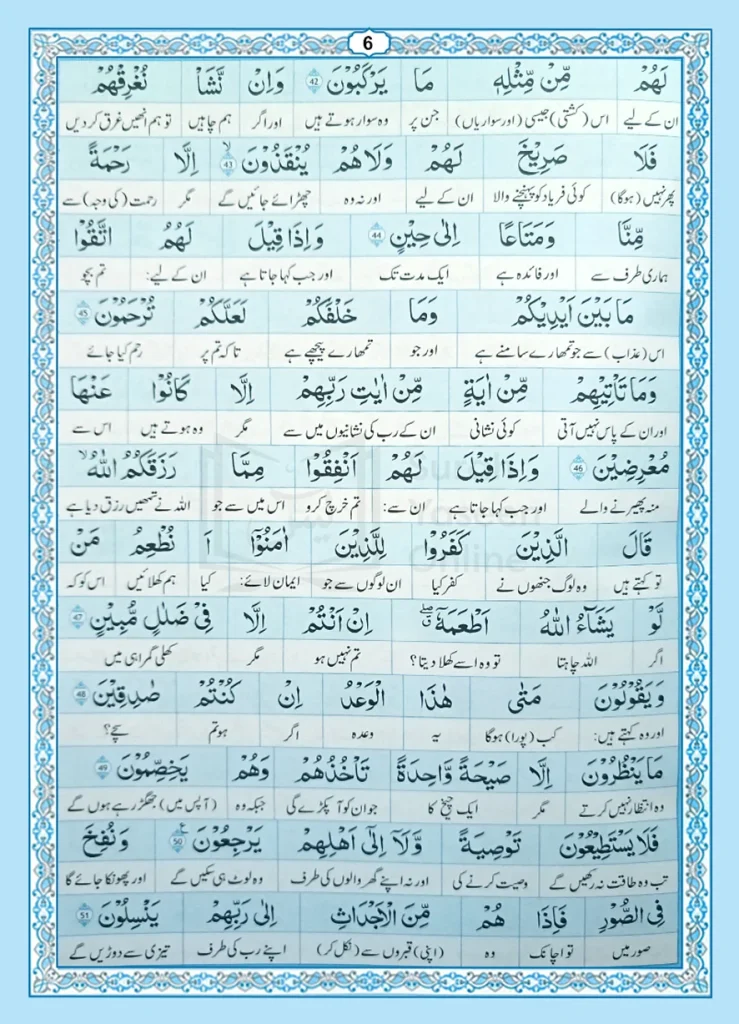 6
لَهُمْ مِّنْ مِّثْلِهٖ مَا يَرْكَبُوْنَ 42 وَاِنْ نَّشَاْ نُغْرِقْهُمْ
ان کے لیے اس (کشتی) جیسی (اور سواریاں) جن پر وہ سوار ہوتے ہیں اور اگر ہم چاہیں تو ہم انھیں غرق کر دیں
فَلَا صَرِيْخَ لَهُمْ وَلَا هُمْ يُنْقَذُوْنَ 43 ۙ اِلَّا رَحْمَةً
پھر نہیں (ہوگا) کوئی فریاد کو پہنچنے والا ان کے لیے اور نہ وہ چھڑائے جائیں گے مگر رحمت (کی وجہ) سے
مِّنَّا وَمَتَاعًا اِلٰى حِيْنٍ 44 وَاِذَا قِيْلَ لَهُمُ اتَّقُوْا
ہماری طرف سے اور فائدہ ہے ایک مدت تک اور جب کہا جاتا ہے ان کے لیے: تم بچو
مَا بَيْنَ اَيْدِيْكُمْ وَمَا خَلْفَكُمْ لَعَلَّكُمْ تُرْحَمُوْنَ 45
اس (عذاب) سے جو تمھارے سامنے ہے اور جو تمھارے پیچھے ہے تاکہ تم پر رحم کیا جائے
وَمَا تَاْتِيْهِمْ مِّنْ اٰيَةٍ مِّنْ اٰيٰتِ رَبِّهِمْ اِلَّا كَانُوْا عَنْهَا
اور ان کے پاس نہیں آتی کوئی نشانی ان کے رب کی نشانیوں میں سے مگر وہ ہوتے ہیں اس سے
مُعْرِضِيْنَ 46 وَاِذَا قِيْلَ لَهُمْ اَنْفِقُوْا مِمَّا رَزَقَكُمُ اللّٰهُ ۙ
منہ پھیرنے والے اور جب کہا جاتا ہے ان سے: تم خرچ کرو اس میں سے جو اللہ نے تمھیں رزق دیا ہے
قَالَ الَّذِيْنَ كَفَرُوْا لِلَّذِيْنَ اٰمَنُوْۤا اَ نُطْعِمُ مَنْ
تو کہتے ہیں وہ لوگ جنھوں نے کفر کیا ان لوگوں سے جو ایمان لائے: کیا ہم کھلائیں اس کو کہ
لَّوْ يَشَآءُ اللّٰهُ اَطْعَمَهٗۤ ۖق اِنْ اَنْتُمْ اِلَّا فِيْ ضَلٰلٍ مُّبِيْنٍ 47
اگر اللہ چاہتا تو وہ اسے کھلا دیتا؟ تم نہیں ہو مگر کھلی گمراہی میں
وَيَقُوْلُوْنَ مَتٰى هٰذَا الْوَعْدُ اِنْ كُنْتُمْ صٰدِقِيْنَ 48
اور وہ کہتے ہیں: کب (پورا) ہوگا یہ وعدہ اگر ہو تم سچے؟
مَا يَنْظُرُوْنَ اِلَّا صَيْحَةً وَّاحِدَةً تَاْخُذُهُمْ وَهُمْ يَخِصِّمُوْنَ 49
وہ انتظار نہیں کرتے مگر ایک چیخ کا جو ان کو آ پکڑے گی جبکہ وہ (آپس میں) جھگڑ رہے ہوں گے
فَلَا يَسْتَطِيْعُوْنَ تَوْصِيَةً وَّلَاۤ اِلٰۤى اَهْلِهِمْ يَرْجِعُوْنَ 50 ع وَنُفِخَ
تب وہ طاقت نہ رکھیں گے وصیت کرنے کی اور نہ اپنے گھر والوں کی طرف وہ لوٹ ہی سکیں گے اور پھونکا جائے گا
فِي الصُّوْرِ فَاِذَا هُمْ مِّنَ الْاَجْدَاثِ اِلٰى رَبِّهِمْ يَنْسِلُوْنَ 51
صور میں تو اچانک وہ (اپنی) قبروں سے (نکل کر) اپنے رب کی طرف تیزی سے دوڑیں گے